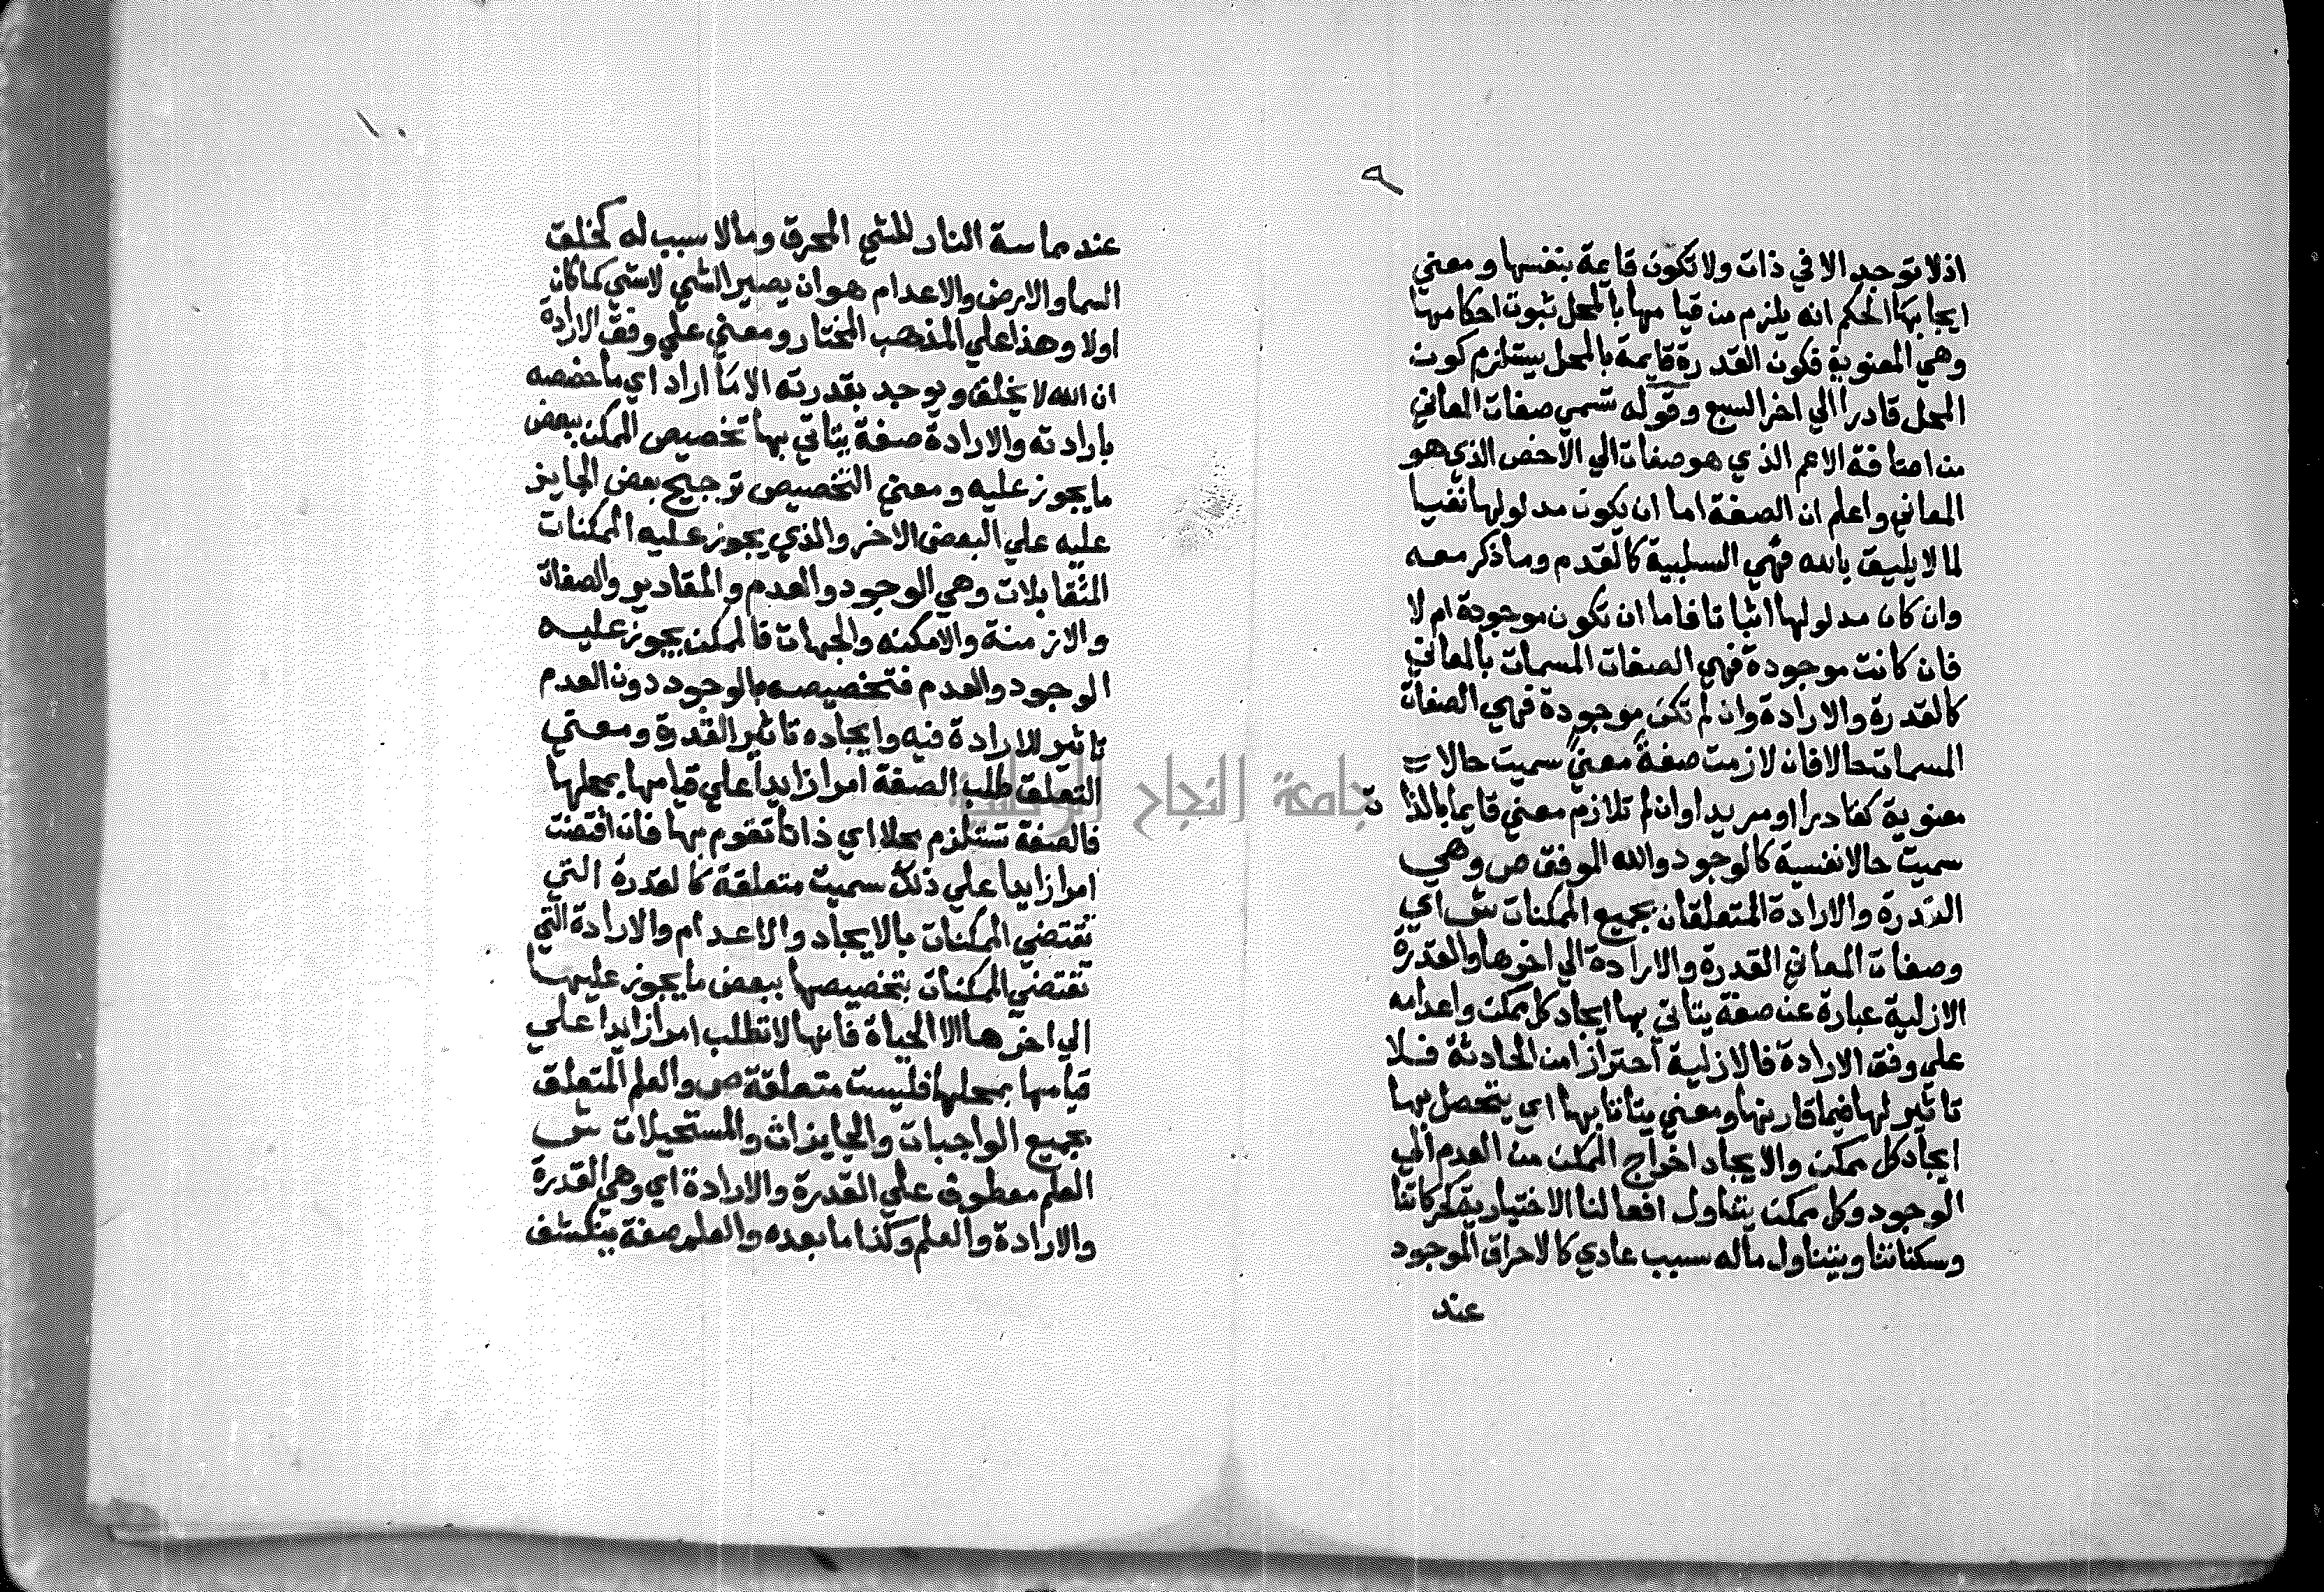 ٩
اذ لا توجد الا في ذات ولا تكون قايمة بنفسها ومعني
ايجابها الحكم انه يلزم من قيامها بالمحل ثبوت احكامها
وهي المعنوية فكون القدرة قايمة بالمحل يستلزم كون
المحل قادرا الي اخر السبع وقوله تسمي صفات المعاني
من اضافة الاعم الذي هو صفات الي الاخص الذي هو
المعاني واعلم ان الصفة اما ان يكون مدلولها نفيا
لما لا يليق بالله فهي السلبية كالقدم وما ذكر معه
وان كان مدلولها اثباتا فاما ان تكون موجودة ام لا
فان كانت موجودة فهي الصفات المسمات بالمعاني
كالقدرة والارادة وان لم تكن موجودة فهي الصفات
المسمات حالا فان لازمت صفة معني سميت حالا
معنوية كقادرا او مريدا وان لم تلازم معني قايما بالذات
سميت حالا نفسية كالوجود والله الموفق ص وهي
القدرة والارادة المتعلقان بجميع الممكنات ش اي
وصفات المعاني القدرة والارادة الي اخرها والقدرة
الازلية عبارة عن صفة يتاتي بها ايجاد كل ممكن واعدامه
علي وفق الارادة فالازلية احترازا من الحادثة فلا
تاثير لها فيما قارنها ومعني يتاتا بها اي يتحصل بها
ايجاد كل ممكن والايجاد اخراج الممكن من العدم الي
الوجود وكل ممكن يتناول افعالنا الاختيارية كحركاتنا
وسكناتنا ويتناول ماله سبب عادي كالاحراق الموجود
عند
١٠
عند مماسة النار للشي المحرق ومالا سبب له كخلق
السما والارض والاعدام هو ان يصير الشي لاشي كما كان
اولا وهذا علي المذهب المختار ومعني علي وفق الارادة
ان الله لا يخلق ويوجد بقدرته الا ما اراد اي ما خصصه
بارادته والارادة صفة يتاتي بها تخصيص الممكن ببعض
ما يجوز عليه ومعني التخصيص ترجيح بعض الجايز
عليه علي البعض الاخر والذي يجوز عليه الممكنات
المتقابلات وهي الوجود والعدم والمقادير والصفات
والازمنة والامكنه والجهات فالممكن يجوز عليه
الوجود والعدم فتخصيصه بالوجود دون العدم
تاثير للارادة فيه وايجاده تاثير القدرة ومعني
التعلق طلب الصفة امرا زايدا علي قيامها بمحلها
فالصفة تستلزم محلا اي ذاتا تقوم بها فان اقتضت
امرا زايدا علي ذلك سميت متعلقة كالقدرة التي
تقتضي الممكنات بالايجاد والاعدام والارادة التي
تقتضي الممكنات بتخصيصها ببعض ما يجوز عليها
الي اخرها الا الحياة فانها لا تطلب امرا زايدا علي
قيامها بمحلها فليست متعلقة ص والعلم المتعلق
بجميع الواجبات والجايزات والمستحيلات ش
العلم معطوف علي القدرة والارادة اي وهي القدرة
والارادة والعلم وكذا ما بعده والعلم صفة ينكشف
جامعة النجاح الوطنية